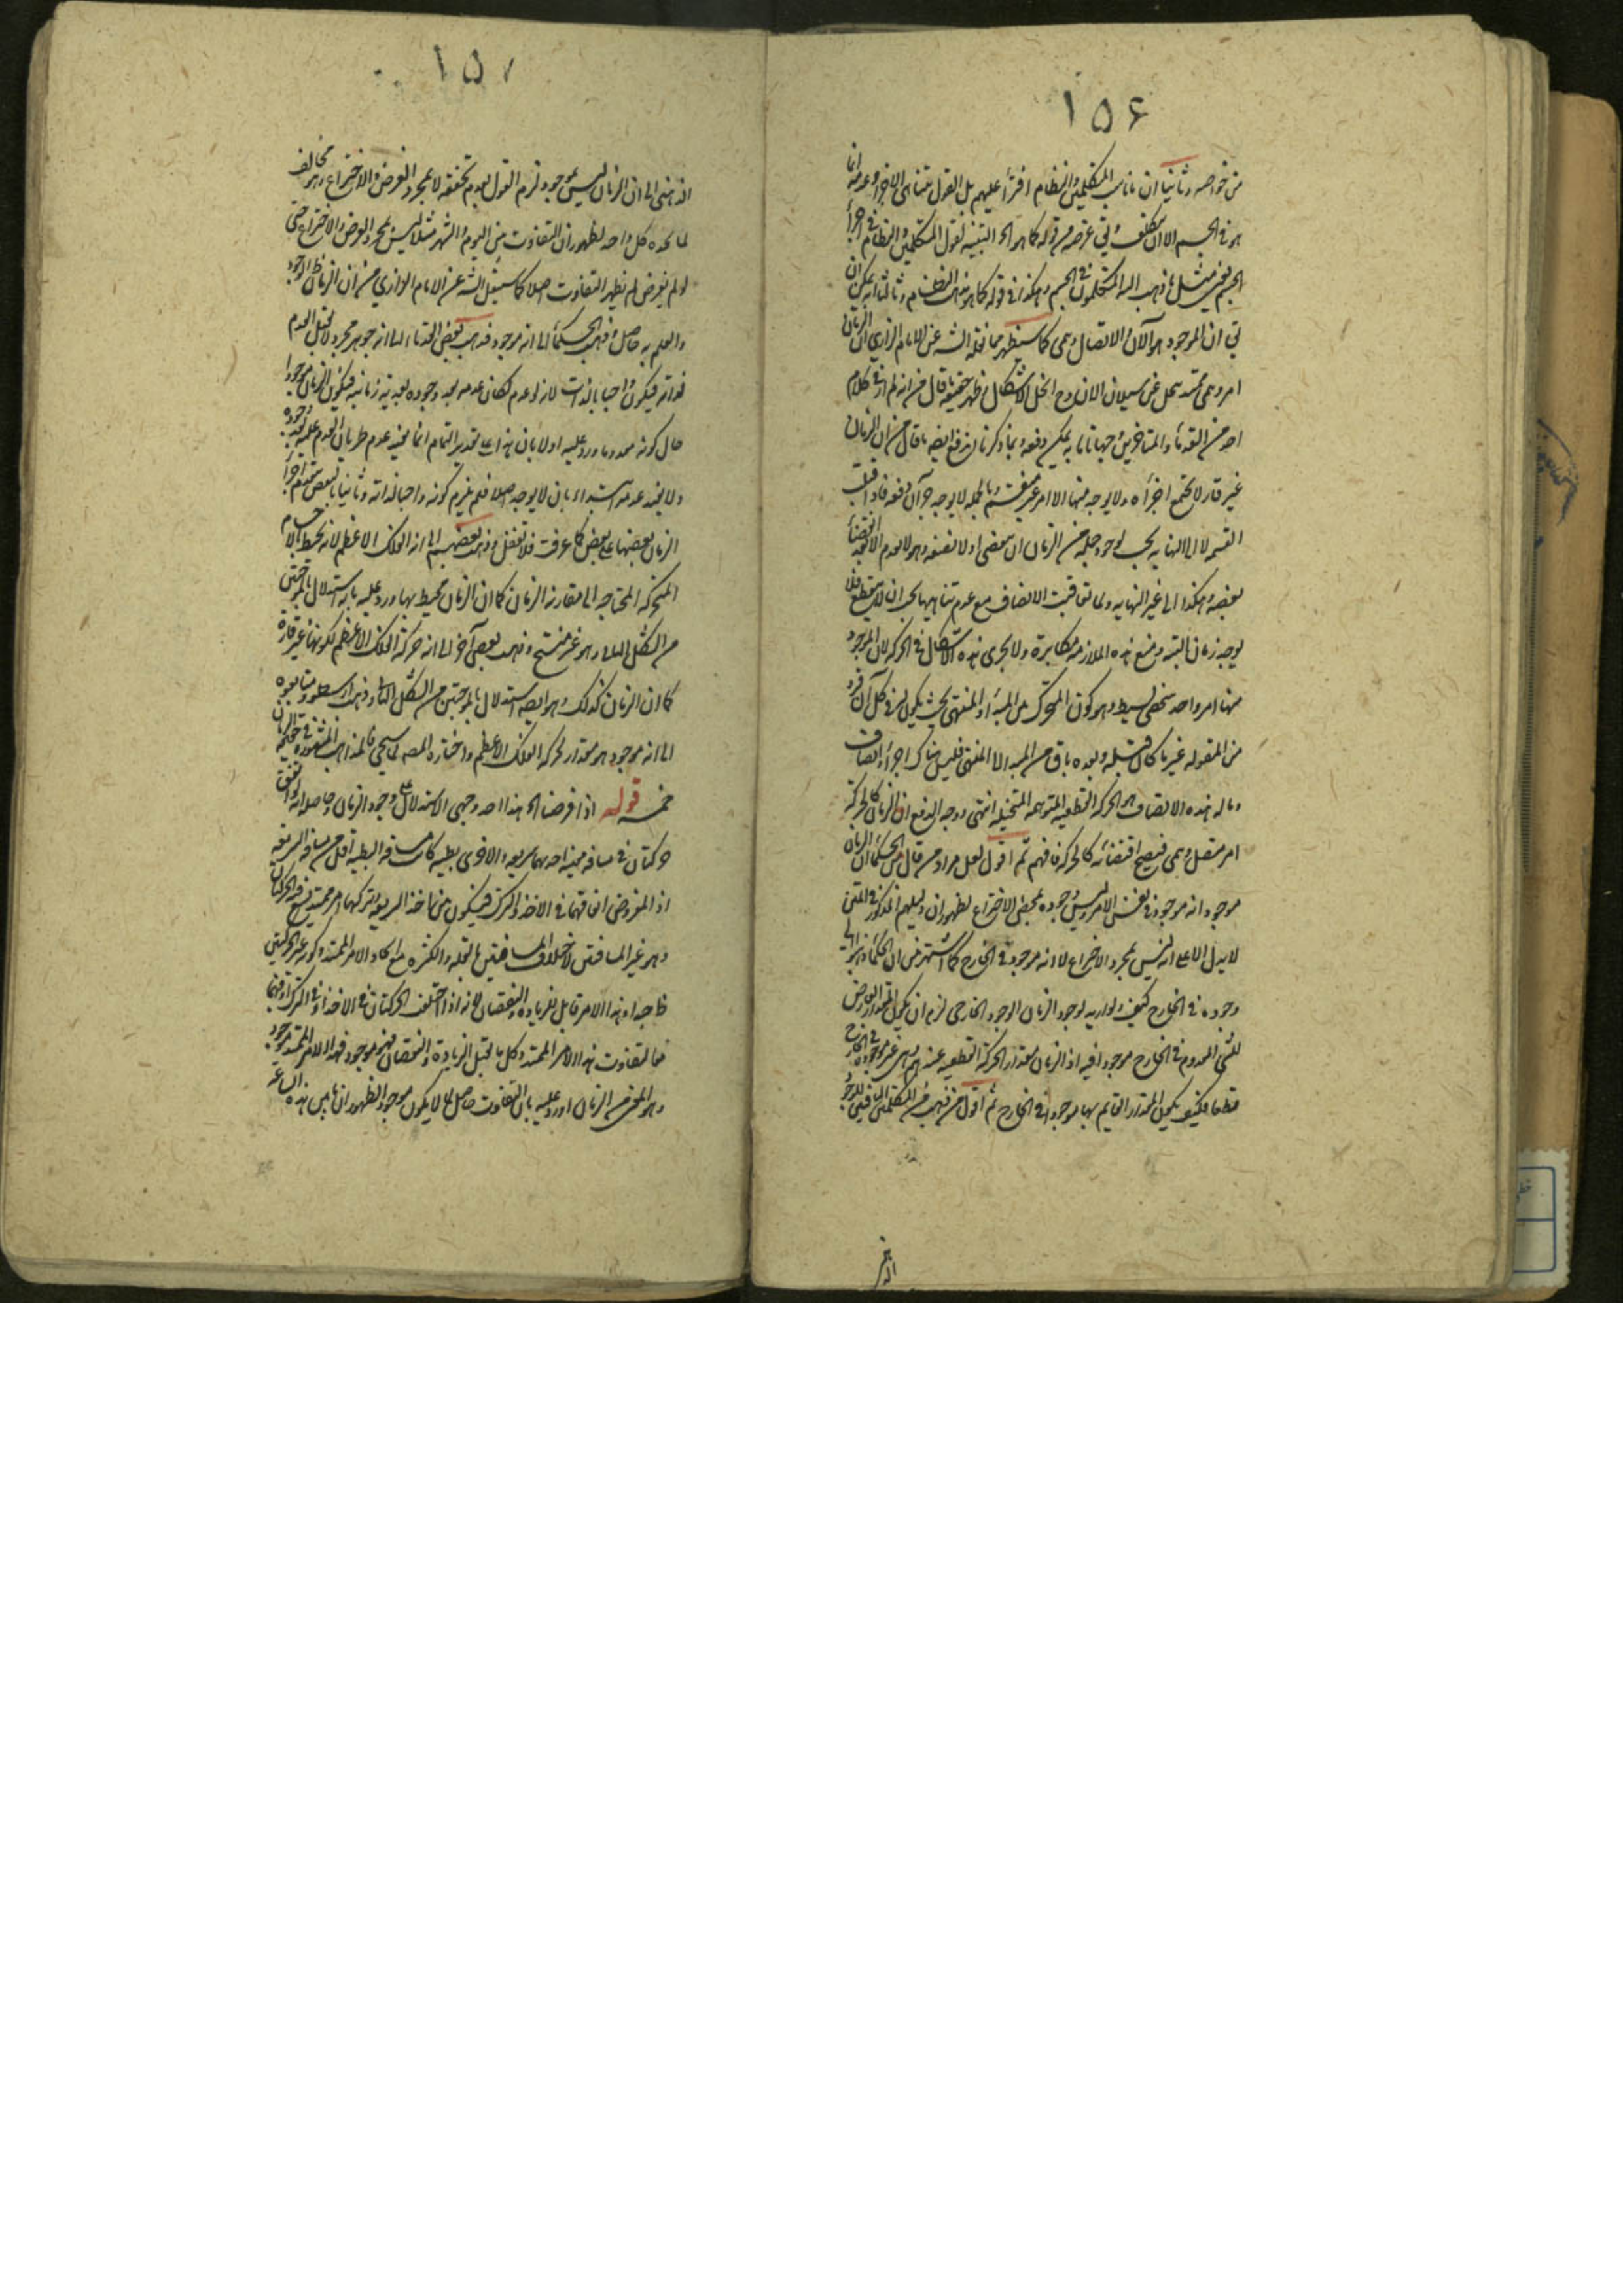 ١٥٤
من خواصه وثانيا ان مذهب المتكلمين والنظام افترا عليهم بل القول بتناهى الاجزاء وعدمه انما
هو فى الجسم الا ان يتكلف وبقى غرضه من قوله كما هو الحد التشبيه لقول المتكلمين والنظام فى اجزأ
الجسم يعنى مثل ما ذهب اليه المتكلمون فى الجسم وهكذا فى قوله كما هو مذهب النظام وثالثا انه يمكن ان
بقى ان الموجود هو الآن والاتصال وهمى كما سيظهر مما نقله الشه عن الامام الرازي ان الزمان
امر وهمى ممتد يحصل عن سيلان الان وح انحل الاشكال وظهر حقيقة ما قال من انه لم ار فى كلام
احد من القدماء والمتاخرين وجها تاما به يمكن دفعه وبما ذكرنا اندفع ايضه ما قال من ان الزمان
غير قار لا تجتمع اجزأه ولا يوجد منها الا امر غير منقسم وبالجملة لا يوجد جزآن دفعة فاذا قبل
القسمة لا الى النهاية يجب لوجود جملة من الزمان ان ينقضى اولا نصفه وهو لا يعدم الا بعد انقضأ
نصفه وهكذا الى غير النهاية ولما تعاقبت الانصاف مع عدم تناهيها يجب ان لا ينقطع فلا
يوجد زمان البتة ومنع هذه الملازمة مكابرة ولا يجرى هذه الاشكال فى الحركة لان الموجود
منها امر واحد شخصى بسيط وهو كون المتحرك بين المبدأ والمنتهى بحيث يكون له فى كل آن فرد
من المقولة غير ما كان قبله وبعده باق من المبدا الى المنتهى فليس هناك اجزأ وانصاف
وما له هذه الانصاف هو الحركة القطعية المتوهمة المتخيلة انتهى ووجه الدفع ان الزمان كالحركة
امر متصل وهمى فيصح انقضائه كالحركة فافهم ثم اقول لعل مراد من قال من الحكمأ ان الزمان
موجود انه موجود فى نفس الامر وليس وجوده بمحض الاختراع لظهور ان دليلهم المذكور فى المتن
لا يدل الا على انه ليس بمجرد الاختراع لا انه موجود فى الخارج كما اشتهر من ان الحكمأ ذهبوا الى
وجوده فى الخارج كيف ولو اريد لوجود الزمان الوجود الخارجى لزم ان يكون المقدار العارض
للشئ المعدوم فى الخارج موجودا فيه اذ الزمان مقدار الحركة القطعية عندهم وهى غير موجودة فى الخارج
قطعا فكيف يكون المقدار القايم بها موجودا فى الخارج ثم اقول من ذهب من المتكلمين النافين للوجود
١٥٧
الذهنى الى ان الزمان ليس بموجود لزم القول بعدم تحققه لا بمجرد الفرض والاختراع وهو مخالف
لما يجده كل واحد لظهور ان التفاوت بين اليوم والشهر مثلا ليس بمجرد الفرض والاختراع حتى
لو لم يفرض لم يظهر التفاوت اصلا كما سينقل الشه عن الامام الرازي من ان الزمان ظاهر الوجود
والعلم به حاصل وذهب الحكمأ الى انه موجود فذهب بعض القدماء الى انه جوهر مجرد لا يقبل العدم
لذاته فيكون واجبا بالذات لانه لو عدم لكان عدمه بعد وجوده بعدية زمانية فيكون الزمان موجودا
حال كونه معدوما ورد عليه اولا بان هذا على تقدير التمام انما يفيد عدم طريان العدم عليه بعد وجوده
ولا يفيد عدمه ابتداء بان لا يوجد اصلا فلم يلزم كونه واجبا لذاته وثانيا بالنقض بتقدم اجزأ
الزمان بعضها على بعض كما عرفت فلا تغفل وذهب بعضهم الى انه الفلك الاعظم لانه محيط بالاجسام
المتحركة المحتاجة الى مقارنة الزمان كما ان الزمان محيط بها ورد عليه بانه استدلال بالموجبتين
من الشكل الثانى وهو غير منتج وذهب بعض آخر الى انه حركة الفلك الاعظم لكونها غير قارة
كما ان الزمان كذلك وهو ايضه استدلال بالموجبتين من الشكل الثانى وذهب ارسطو ومتابعوه
الى انه موجود هو مقدار لحركة الفلك الاعظم واختاره المصه لما سيجئ فالمذاهب المشهورة فى حقيقة الزمان
خمسه قوله اذا فرضنا الخ هذا احد وجهى الاستدلال على وجود الزمان وحاصله انه لو اتفق
حركتان فى مسافة معينة احديهما سريعة والاخرى بطيئة كانت مسافة البطيئة اقل من مسافة السريعة
اذ المفروض اتفاقهما فى الاخذ والترك فيكون بين اخذ السريعة وتركها امر ممتد يقع فيه الحركتان
وهو غير المسافتين لاختلاف المسافتين بالقلة والكثرة مع اتحاد الامر الممتد وكونه غير الحركتين
ظاهر وهذا الامر قابل للزيادة والنقصان لانه اذا اختلف الحركتان فى الاخذ او فى الترك او فيهما
فالتفاوت بهذا الامر الممتد وكل ما يقبل الزيادة والنقصان فهو موجود فهذا الامر الممتد موجود
وهو المعنى من الزمان اورد عليه بان التفاوت حاصل لما لا يكون موجودا لظهور ان ما بين هذه الساعة